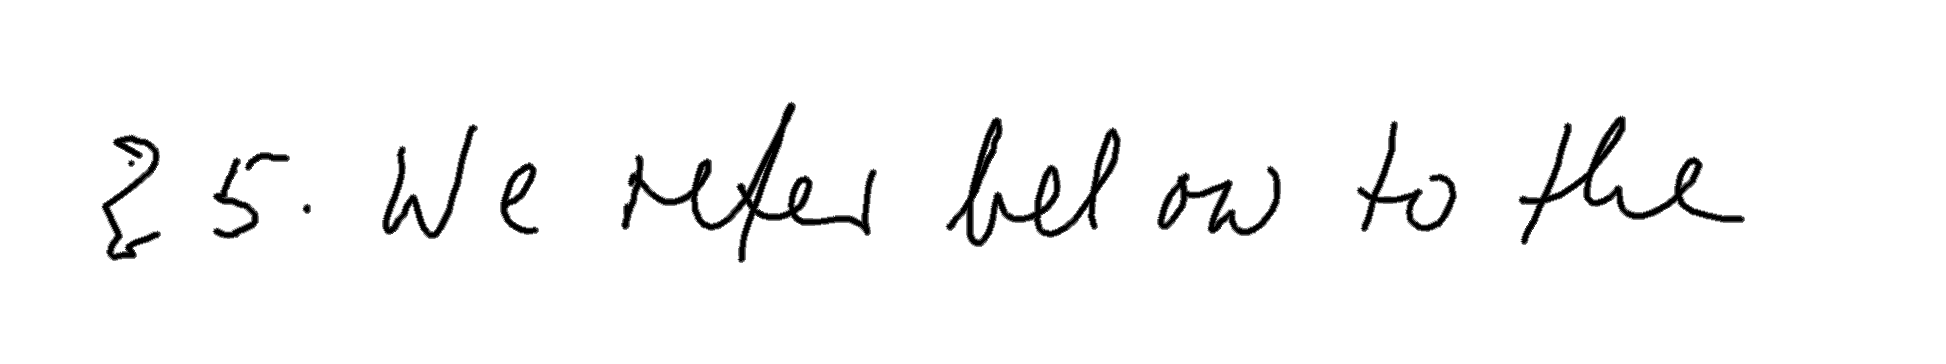 § 5. We refer below to the